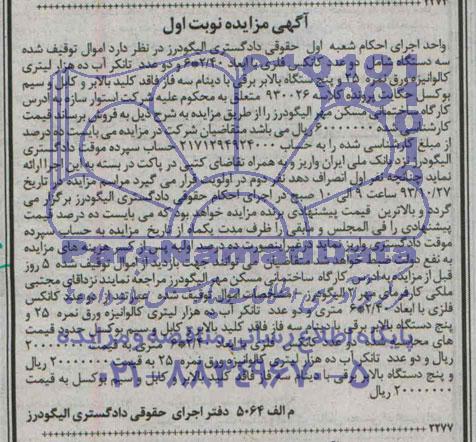 ۲۲۷۱
آگهی مزایده نوبت اول
واحد اجرای احکام شعبه اول حقوقی دادگستری الیگودرز در نظر دارد اموال توقیف شده
سه دستگاه شامل دو عدد کانکس فلزی با ابعاد ۶*۲/۴۰ و دو عدد تانکر آب ده هزار لیتری
گالوانیزه ورق نمره ۲۵ و پنج دستگاه بالابر برقی با دینام سه فاز فاقد کلید بالابر و کابل و سیم
بوکسل پرونده کلاسه ۹۳۰۰۲۶ متعلق به محکوم علیه شرکت استوار سازه به آدرس
کارگاه ساختمانی مسکن مهر الیگودرز را از طریق مزایده به شرح ذیل به فروش برساند قیمت
کارشناسی ریال می باشد متقاضیان شرکت در مزایده می بایست ده درصد
از مبلغ کارشناسی شده را به حساب ۲۱۷۱۲۹۴۹۲۴۰۰۰ حساب سپرده موقت دادگستری
الیگودرز نزد بانک ملی ایران واریز و به همراه تقاضای کتبی در پاکت در بسته به این اجرا ارائه
نمایند چنانچه نفر اول انصراف دهد نفر دوم در اولویت قرار می گیرد مراسم مزایده در تاریخ
۹۳/۱۰/۲۷ ساعت ۹ الی ۱۰ صبح در اجرای احکام حقوقی دادگستری الیگودرز برگزار می
گردد و بالاترین قیمت پیشنهادی برنده مزایده خواهد بود که می بایست ده درصد قیمت
پیشنهادی را فی المجلس و مابقی را ظرف مدت یکماه از تاریخ مزایده به حساب سپرده
موقت دادگستری واریز نماید در غیر اینصورت ده درصد اولیه پس از کسر هزینه های مزایده
به نفع دولت ضبط خواهد شد متقاضیان می توانند جهت بازدید از اموال توقیف شده ۵ روز
قبل از مزایده به آدرس کارگاه ساختمانی مسکن مهر الیگودرز مراجعه نمایند نزد آقای مجتبی
ملکی کارفرمای مهر الیگودرز مشخصات اموال توقیف شده عبارتند از دو عدد کانکس
فلزی با ابعاد ۶*۲/۴۰ متری و دو عدد تانکر آب ده هزار لیتری گالوانیزه ورق نمره ۲۵ و
پنج دستگاه بالابر برقی با دینام سه فاز فاقد کلید بالابر و کابل و سیم بوکسل حدود قیمت
های فلزی با ابعاد
ریال و دو عدد تانکر آب ده هزار لیتری گالوانیزه ورق نمره ۲۵ به قیمت ریال
و پنج دستگاه بالابر برقی با دینام سه فاز فاقد کلید بالابر و کابل و سیم بوکسل به قیمت
ریال
م الف ۵۰۶۴ دفتر اجرای حقوقی دادگستری الیگودرز
۲۲۷۷
ParsNamadData
پایگاه اطلاع رسانی مناقصه و مزایده
۰۲۱-۸۸۳۴۹۶۷۰-۵